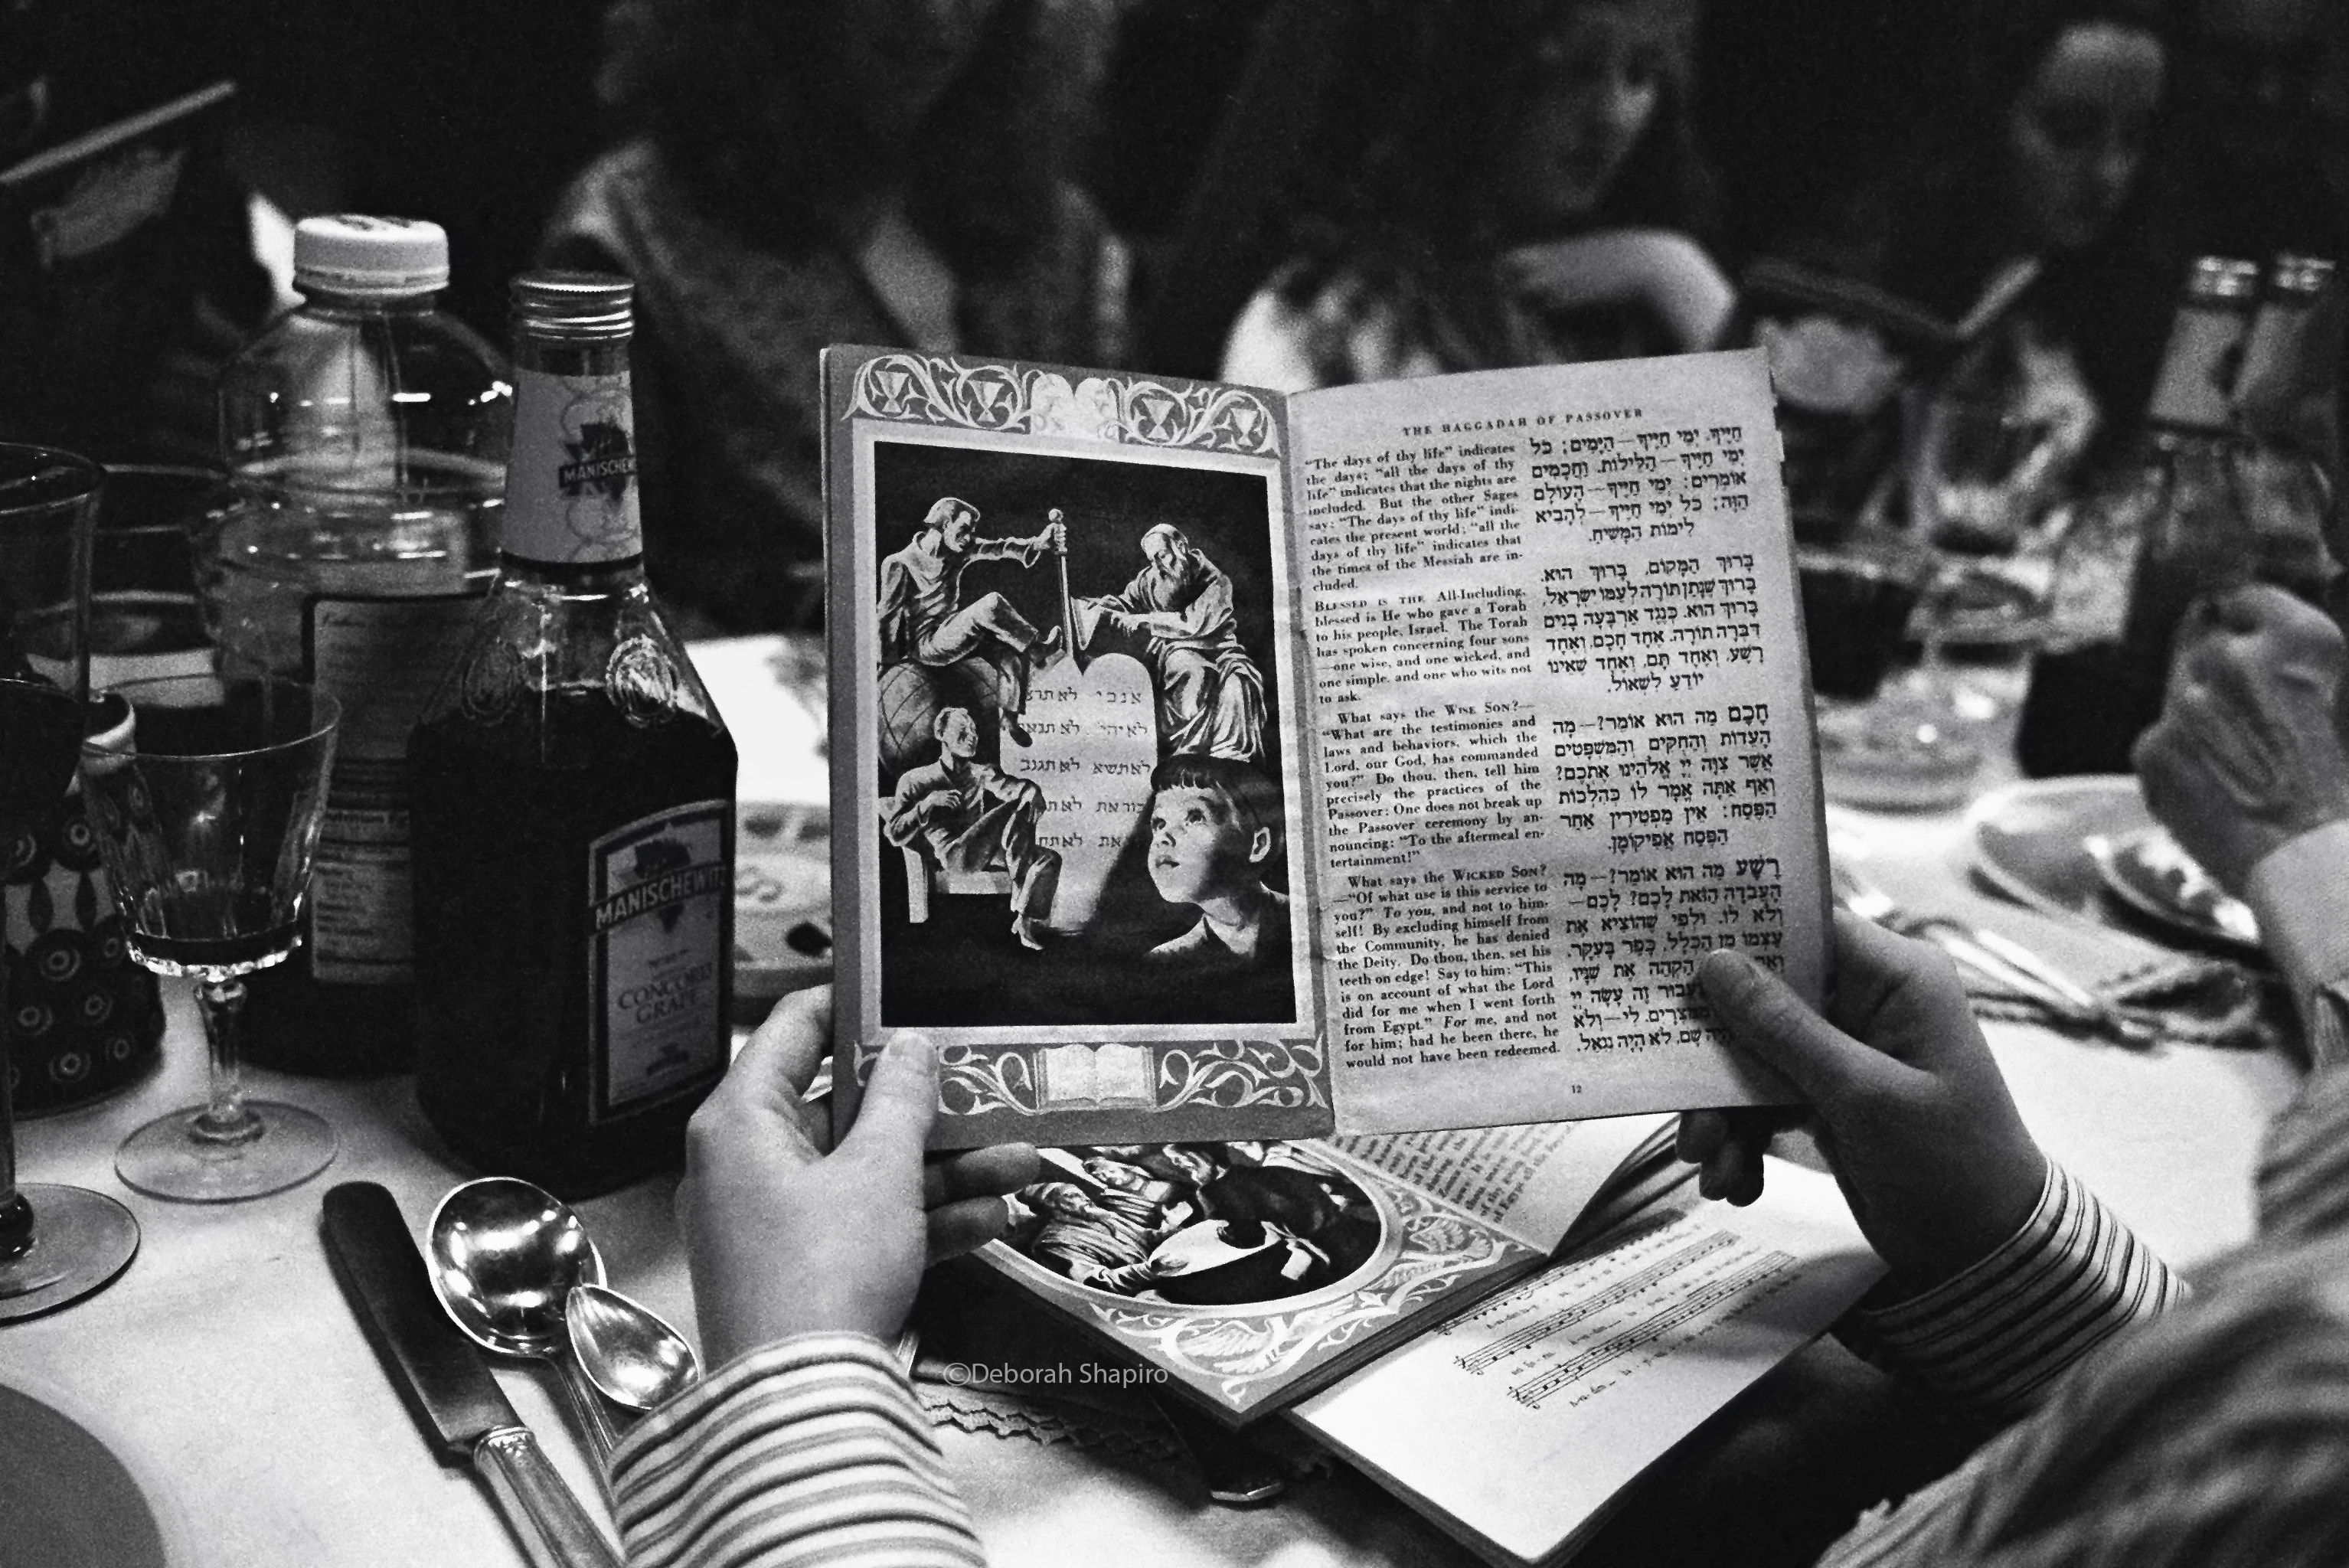 MANISCHEWITZ
CONCORD
GRAPE
אנכי לא תרצ
לא יהי' לא תנאף
לא תשא לא תגנב
THE HAGGADAH OF PASSOVER
"The days of thy life" indicates
the days; "all the days of thy
life" indicates that the nights are
included. But the other Sages
say: "The days of thy life" indi-
cates the present world; "all the
days of thy life" indicates that
the times of the Messiah are in-
cluded.
BLESSED IS THE All-Including,
blessed is He who gave a Torah
to his people, Israel. The Torah
has spoken concerning four sons
—one wise, and one wicked, and
one simple, and one who wits not
to ask.
What says the WISE SON?—
"What are the testimonies and
laws and behaviors, which the
Lord, our God, has commanded
you?" Do thou, then, tell him
precisely the practices of the
Passover: One does not break up
the Passover ceremony by an-
nouncing: "To the aftermeal en-
tertainment!"
What says the WICKED SON?
—"Of what use is this service to
you?" To you, and not to him-
self! By excluding himself from
the Community, he has denied
the Deity. Do thou, then, set his
teeth on edge! Say to him: "This
is on account of what the Lord
did for me when I went forth
from Egypt." For me, and not
for him; had he been there, he
would not have been redeemed.
חַיֶּיךָ. יְמֵי חַיֶּיךָ—הַיָּמִים; כֹּל
יְמֵי חַיֶּיךָ—הַלֵּילוֹת. וַחֲכָמִים
אוֹמְרִים: יְמֵי חַיֶּיךָ—הָעוֹלָם
הַזֶּה; כֹּל יְמֵי חַיֶּיךָ—לְהָבִיא
לִימוֹת הַמָּשִׁיחַ.
בָּרוּךְ הַמָּקוֹם, בָּרוּךְ הוּא.
בָּרוּךְ שֶׁנָּתַן תּוֹרָה לְעַמּוֹ יִשְׂרָאֵל,
בָּרוּךְ הוּא. כְּנֶגֶד אַרְבָּעָה בָנִים
דִּבְּרָה תוֹרָה. אֶחָד חָכָם, וְאֶחָד
רָשָׁע, וְאֶחָד תָּם, וְאֶחָד שֶׁאֵינוֹ
יוֹדֵעַ לִשְׁאוֹל.
חָכָם מַה הוּא אוֹמֵר?—מָה
הָעֵדוֹת וְהַחֻקִּים וְהַמִּשְׁפָּטִים
אֲשֶׁר צִוָּה יְיָ אֱלֹהֵינוּ אֶתְכֶם?
וְאַף אַתָּה אֱמָר לוֹ כְּהִלְכוֹת
הַפֶּסַח: אֵין מַפְטִירִין אַחַר
הַפֶּסַח אֲפִיקוֹמָן.
רָשָׁע מַה הוּא אוֹמֵר?—מָה
הָעֲבֹדָה הַזֹּאת לָכֶם? לָכֶם—
וְלֹא לוֹ. וּלְפִי שֶׁהוֹצִיא אֶת
עַצְמוֹ מִן הַכְּלָל, כָּפַר בָּעִקָּר.
הַקְהֵה אֶת שִׁנָּיו,
זֶה עָשָׂה יְיָ
לִי—וְלֹא
שָׁם, לֹא הָיָה נִגְאָל.
12
©Deborah Shapiro